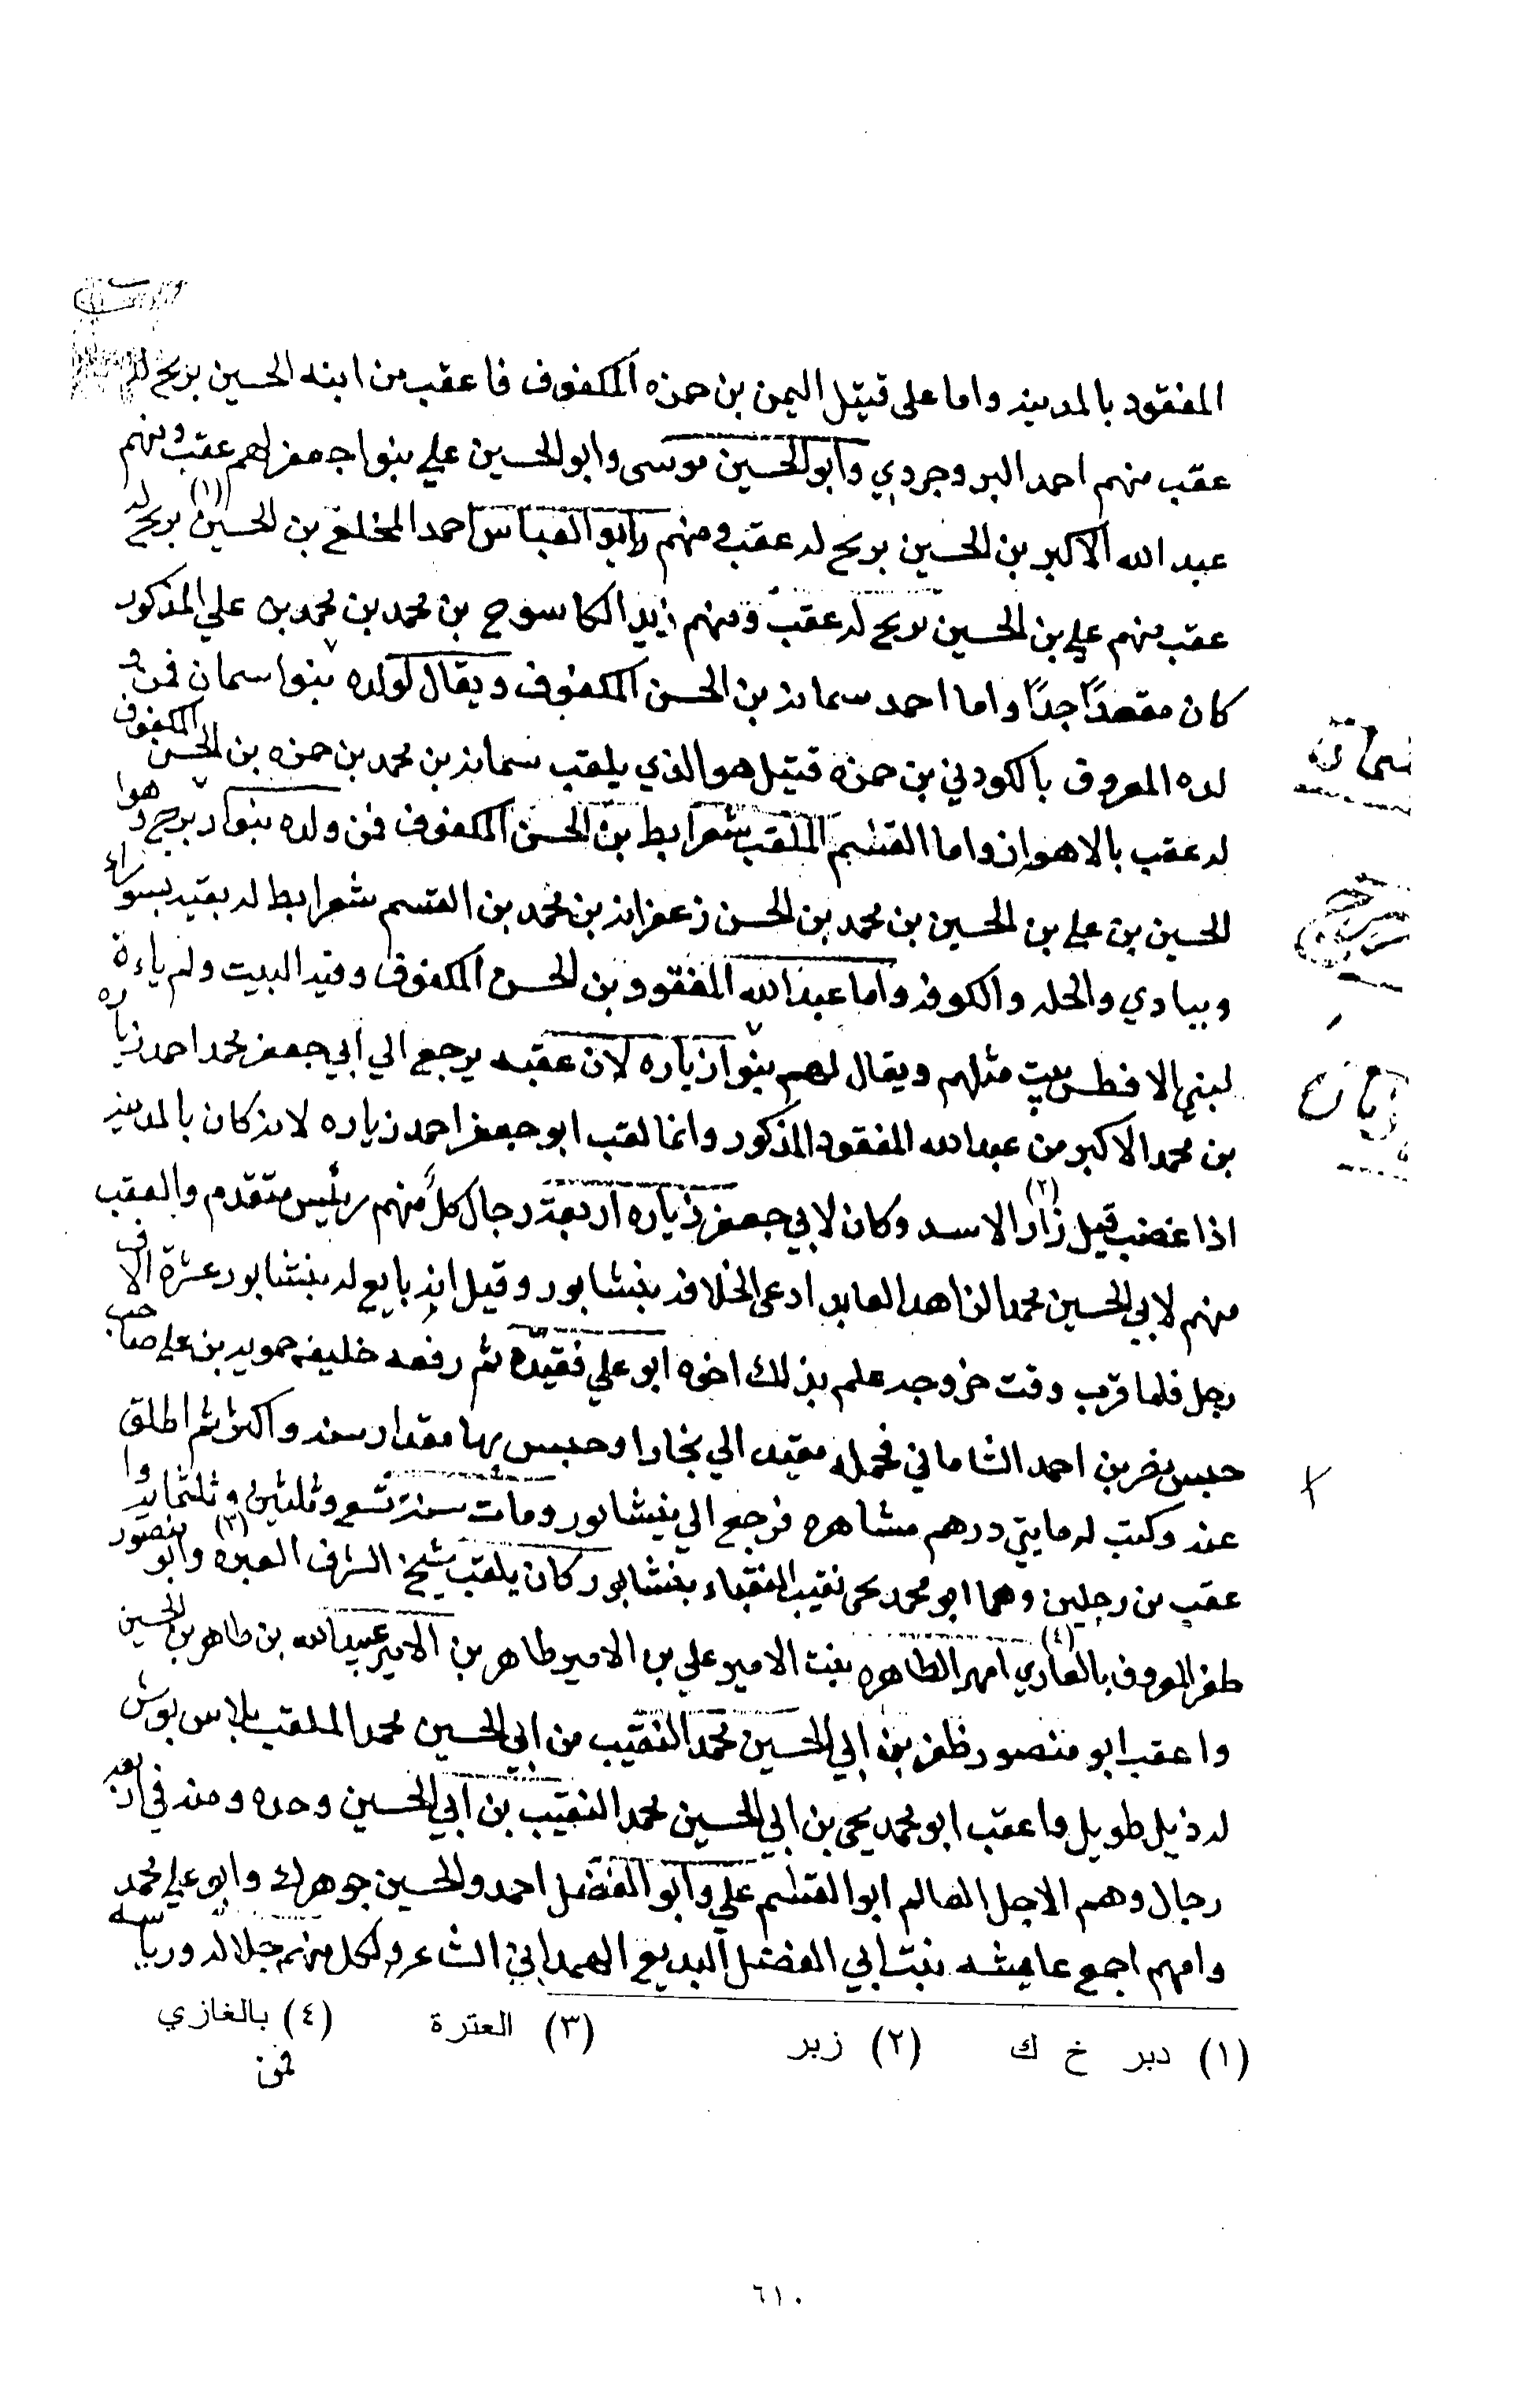 المفقود بالمدينه واما على قتيل اليمن بن حمزه المكفوف فاعقب من ابنه الحسين بريح له
عقب منهم احمد البروجردي وابو الحسين موسى وابو الحسين علي بنوا جعفر لهم عقب ومنهم
عبد الله الاكبر بن الحسين بريح له عقب ومنهم ابو العباس احمد المخلع بن الحسين (١) بريح له
عقب منهم علي بن الحسين بريح له عقب ومنهم زيد الكاسوح بن محمد بن محمد بن علي المذكور
كان مقعدًا جدًا واما احمد سمانه بن الحسن المكفوف ويقال لولده بنوا سمانه فمن و
لده المعروف بالكودني بن حمزه قتيل هو الذي يلقب سمانه بن محمد بن حمزه بن الحسن المكفوف
له عقب بالاهواز واما القاسم الملقب شعرابط بن الحسن المكفوف فمن ولده بنوا دبرج وهوا
الحسين بن علي بن الحسين بن محمد بن الحسن زعفرانه بن محمد بن القسم شعرابط له بقيه بسوراء
وببادي والحله والكوفه واما عبد الله المفقود بن الحسن المكفوف وفيه البيت ولم ياءة
لبني الافطس بيت مثلهم ويقال لهم بنوا زياره لان عقبه يرجع الي ابي جعفر محمد احمد زياره
بن محمد الاكبر من عبد الله المفقود المذكور وانما لقب ابو جعفر احمد زياره لانه كان بالمدينه
اذا غضب قيل زار (٢) الاسد وكان لابي جعفر زياره اربعة رجال كل منهم رئيس متقدم والعقب
منهم لابي الحسين محمد الزاهد العابد ادعى الخلافه بنيشابور وقيل انه بايع له بنيشابور عشرة الاف
رجل فلما قرب وقت خروجه علم بذلك اخوه ابو علي فقيده ثم رفعه خليفه حمويه بن علي صاحب
حبس نصر بن احمد الشاماني فحمله مقيد الي بخارا وحبس بها مقدار سنه واكثر ثم اطلق
عنه وكتب له مايتي درهم مشاهره فرجع الي نيشابور ومات سنة تسع وثلثين وثلثمايه وا
عقب من رجلين وهما ابو محمد يحي نقيب النقباء بنيشابور كان يلقب شيخ الشرف العبره (٣) وابو منصور
ظفر المعروف بالعاري (٤) امهم الطاهره بنت الامير علي بن الامير طاهر بن الامير عبيد الله بن طاهر بن الحسين
واعقب ابو منصور ظفر بن ابي الحسين محمد النقيب من ابي الحسين محمد الملقب بلاس بوش
له ذيل طويل واعقب ابو محمد يحي بن ابي الحسين محمد النقيب بن ابي الحسين وحده ومنه في اربعه
رجال وهم الاجل العالم ابو القاسم علي وابو الفضل احمد والحسين جوهرك وابو علي محمد
وامهم اجمع عايشه بنت ابي الفضل البديع الهمداني الشاعر ولكل منهم جلاله ورياسه
سمانة
زيارة
(١) دبر خ ك (٢) زبر (٣) العترة (٤) بالغازي
فمن
٦١٠